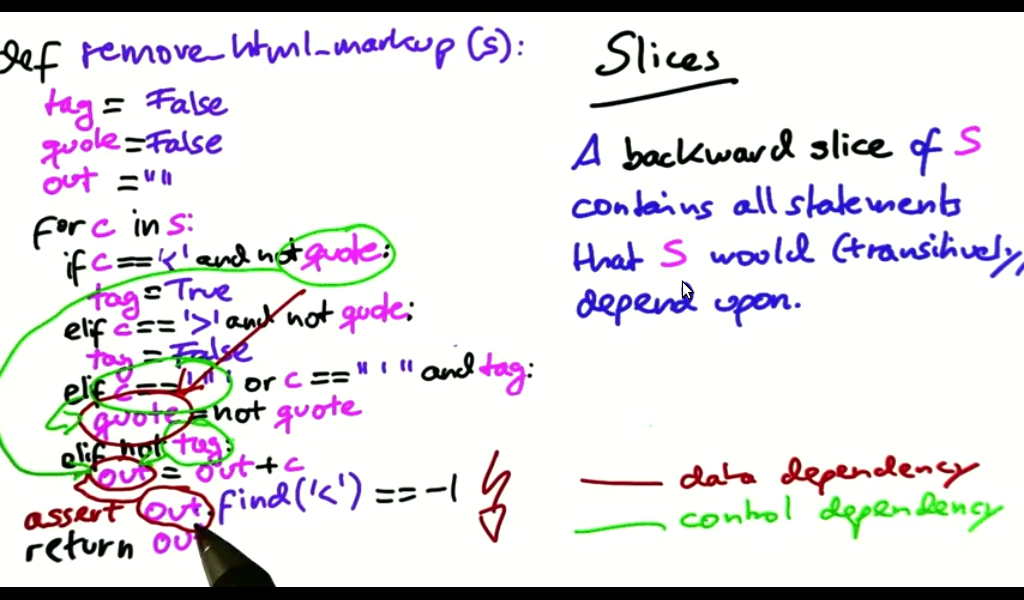 def remove_html_markup (s):
tag = False
quote = False
out = ""
for c in s:
if c == '<' and not quote:
tag = True
elif c == '>' and not quote:
tag = False
elif c == '"' or c == "'" and tag:
quote = not quote
elif not tag:
out = out + c
assert out.find('<') == -1
return out
Slices
A backward slice of S
contains all statements
that S would (transitively)
depend upon.
data dependency
control dependency